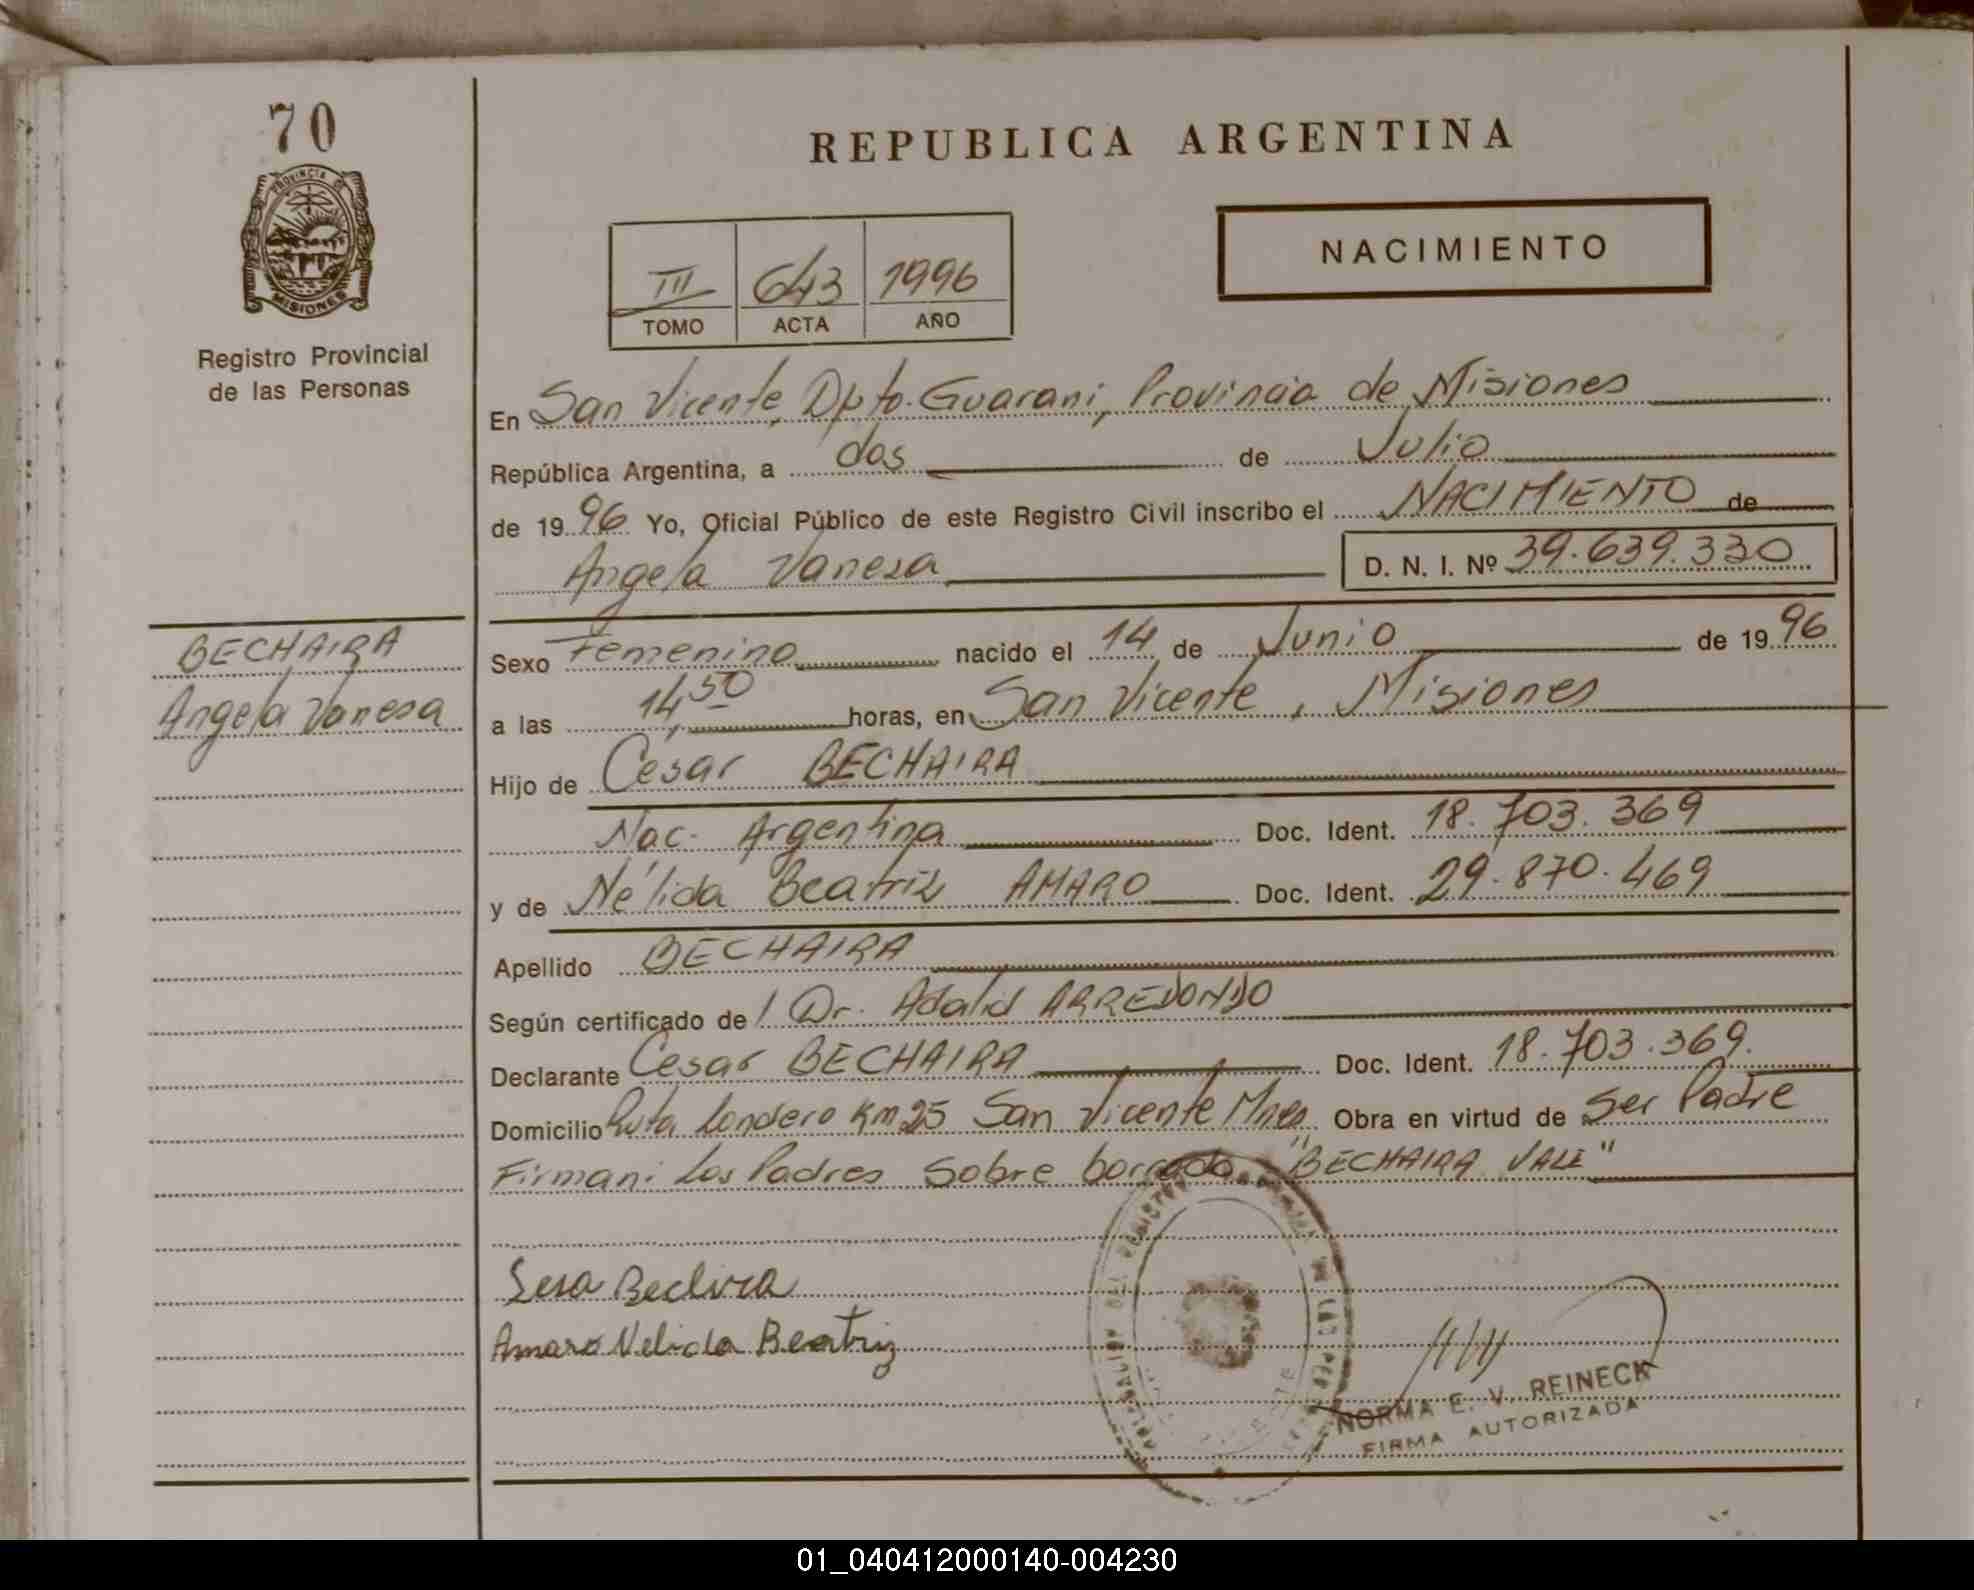 70
REPUBLICA ARGENTINA
PROVINCIA DE
MISIONES
Registro Provincial
de las Personas
III 643 1996
TOMO ACTA AÑO
NACIMIENTO
En San Vicente, Dpto. Guaraní, Provincia de Misiones
República Argentina, a dos de Julio
de 1996 Yo, Oficial Público de este Registro Civil inscribo el NACIMIENTO de
Angela Vanesa D. N. I. Nº 39.639.330
BECHAIRA
Angela Vanesa
Sexo Femenino nacido el 14 de Junio de 1996
a las 14,50 horas, en San Vicente, Misiones
Hijo de César BECHAIRA
Nac. Argentina Doc. Ident. 18.703.369
y de Nélida Beatriz AMARO Doc. Ident. 29.870.469
Apellido BECHAIRA
Según certificado de Dr. Adalid ARREDONDO
Declarante César BECHAIRA Doc. Ident. 18.703.369.
Domicilio Ruta Londero Km 25 San Vicente Mnes Obra en virtud de Ser Padre
Firman: Los Padres Sobre borrado "BECHAIRA VALE"
Amaro Nelida Beatriz
NORMA E. V. REINECK
FIRMA AUTORIZADA
01_040412000140-004230